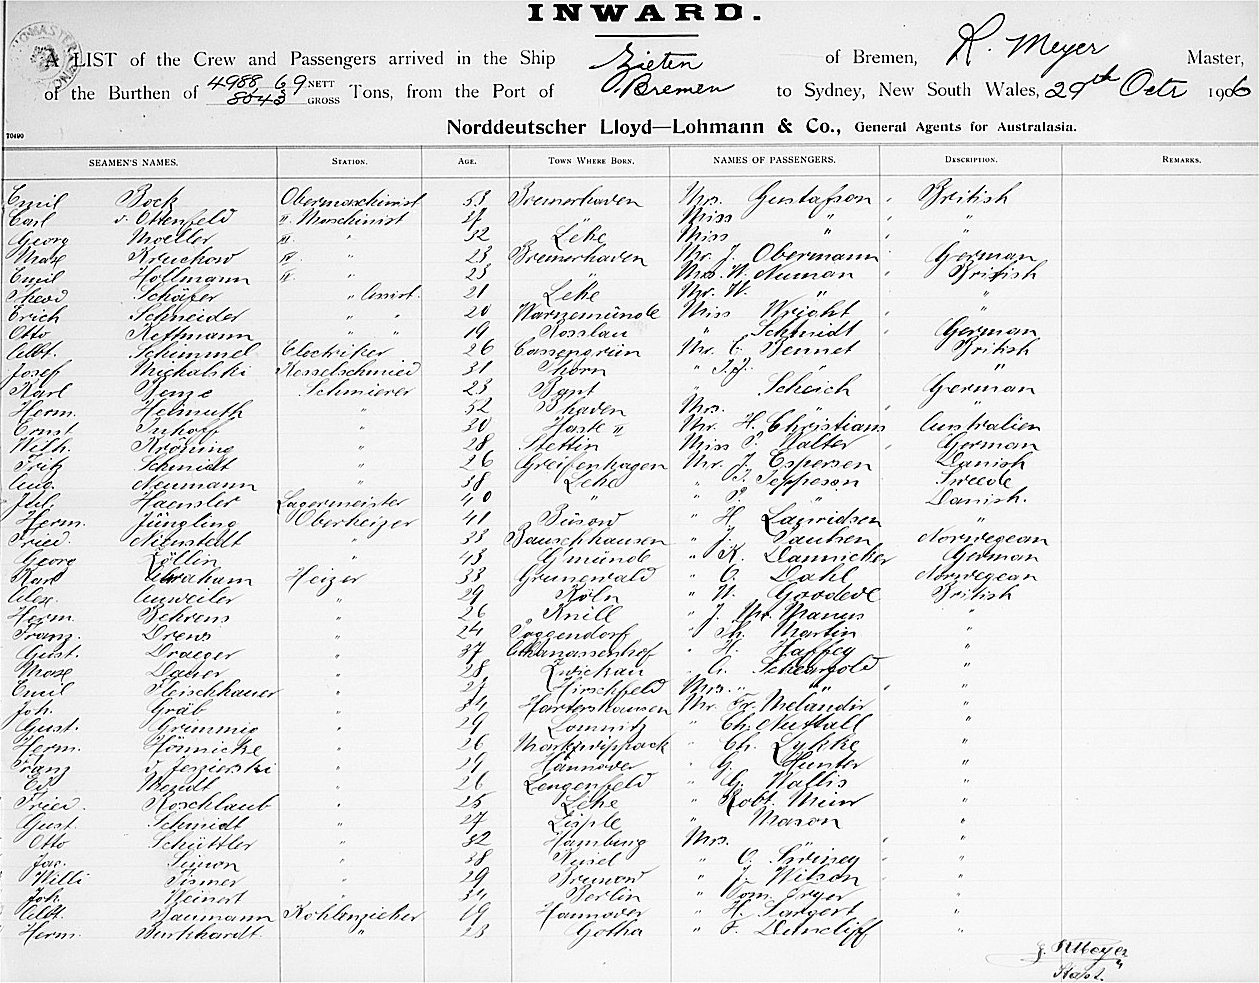 INWARD.
A LIST of the Crew and Passengers arrived in the Ship Zieten of Bremen, R. Meyer Master,
of the Burthen of 4988,69 NETT 8043 GROSS Tons, from the Port of Bremen to Sydney, New South Wales, 29th Octr 1906
70490
Norddeutscher Lloyd—Lohmann & Co., General Agents for Australasia.
SEAMEN'S NAMES. STATION. AGE. TOWN WHERE BORN. NAMES OF PASSENGERS. DESCRIPTION. REMARKS.
Emil Bock Obermaschinist 53 Bremerhaven Mrs. Gustafson British
Carl v. Ottenfeld II. Maschinist 37 " Miss " "
Georg Moeller III. " 32 Lehe Miss " "
Max Kruckow IV. " 23 Bremerhaven Mr. J. Obermann German
Emil Hollmann IV. " 23 " Mrs. W. Numan British
Theod Schäfer " Assist. 21 Lehe Mr. W. " "
Erich Schneider " " 20 Warnemünde Miss Wright "
Otto Rettmann " " 19 Rosslau " Schmidt German
Albt. Schimmel Electriker 26 Mr. C. Bennet British
Josef Michalski Kesselschmied 31 Thorn " "
Karl Benze Schmierer 23 Bant " Scheich German
Herm. Helmuth " 52 Bhaven Mrs. " "
Ernst Imhoff " 30 Haste II Mr. H. Christians Australien
Wilh. Kröning " 28 Stettin Miss P. Walter German
Fritz Schmidt " 26 Greifenhagen Mr. J. Espersen Danish
Aug. Neumann " 38 Lehe " P. Jepposon Swede
Jul. Haensler Lagermeister 40 " " P. " Danish.
Herm. Jüngling Oberheizer 41 Büsow " H. Lawridsen "
Fried. Nienstedt " 33 Bauschhausen " J. Paulsen Norwegean
Georg Zöllin " 43 Gmünde " K. Dannicker German
Karl Abraham Heizer 33 Grunewald " O. Dahl Norwegean
Alex. Auweiler " 29 Köln " W. Goodeve British
Herm. Behrens " 26 Knill " J. Mc Manus "
Franz. Drews " 24 Poggendorf " Th. Martin "
Gust. Draeger " 37 Athanassenhof " H. Haffey "
Max Dauer " 28 Zwickau " G. "
Emil Fleischhauer " 27 Hirschfeld Mrs. " " "
Joh. Gräb " 34 Hartershausen Mr. Fr. Melandir "
Gust. Grimmig " 29 Lomnitz " Ch. Nuttall "
Herm. Hönnicke " 26 Marktvippach " Ch. Lykke "
Franz v. Jezierski " 29 Hannover " G. Hunter "
Ed. Mendt " 26 Lengenfeld " G. Wallis "
Fried. Roschlaub " 25 Lehe " Robt. Muir "
Gust. Schmidt " 27 " Mason "
Otto Schüttler " 32 Hamburg Mrs. " "
Jac. Simon " 38 Kusel " O. "
Willi Tismer " 29 Brunow " J. Wilson "
Joh. Weinert " 34 Berlin " Tom. Fryer "
Albt. Baumann Kohlenzieher 19 Hannover " H. Sargert "
Herm. Burkhardt " 23 Gotha " F. Duncliff "
R Meyer
Kapt.